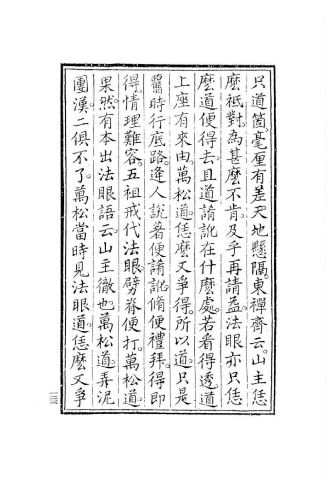 只道箇。毫厘有差。天地懸隔。東禪齊云。山主恁
麼祗對。為甚麼不肯。及乎再請益。法眼亦只恁
麼道便得去。且道誵訛在什麼處。若看得透。道
上座有來由。萬松道。恁麼又爭得。所以道。只是
舊時行底路。逢人説著便誵訛。脩便禮拜。得即
得。情理難容。五祖戒代法眼劈脊便打。萬松道。
果然有本出法眼語云。山主徹也。萬松道。弄泥
團漢。二俱不了。萬松當時見法眼道。恁麼又爭